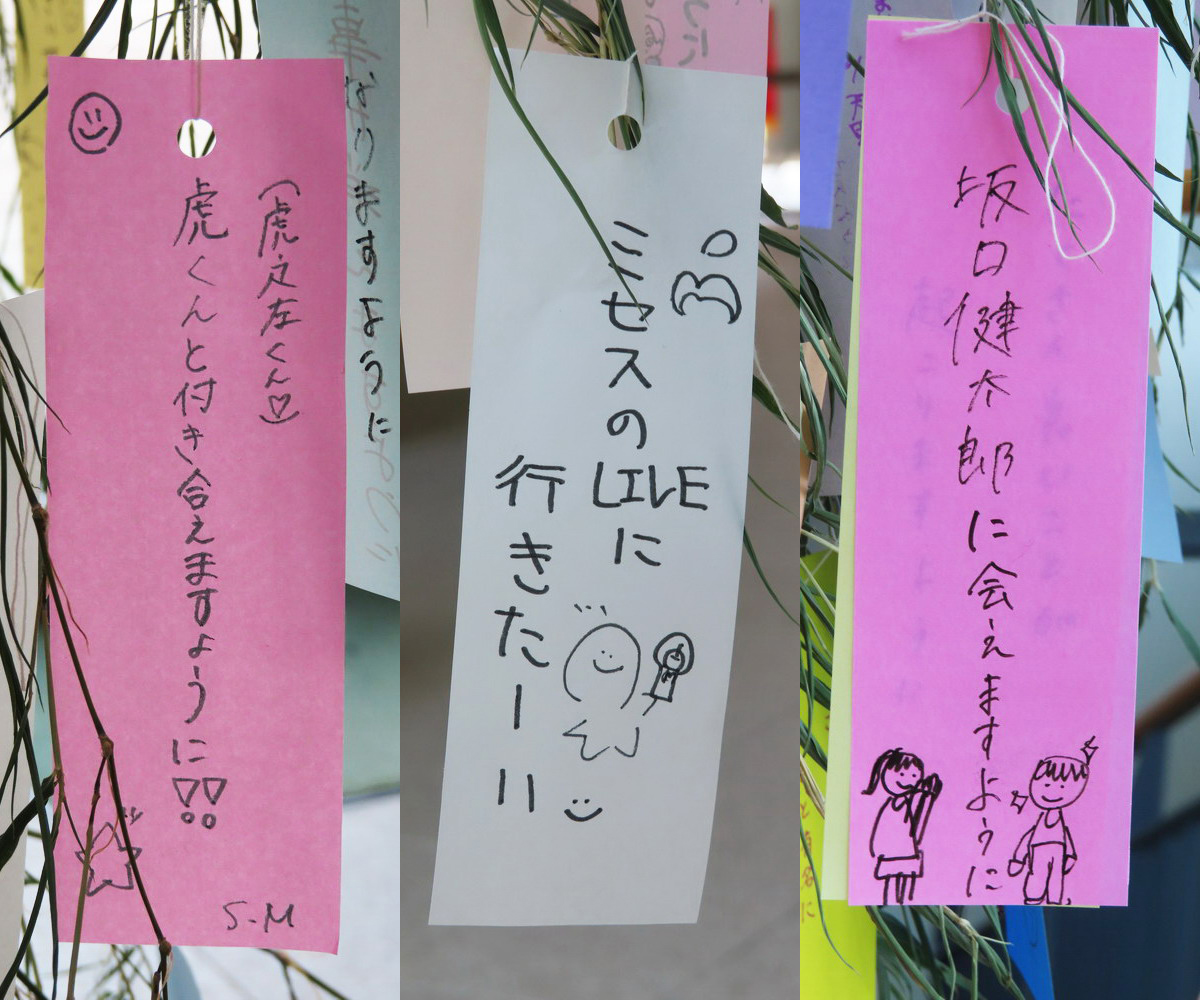 (虎之左くん♡)
虎くんと付き合えますように!!
S.M
なりますように
ミセスの
LIVEに
行きたーい
坂口健太郎に会えますように